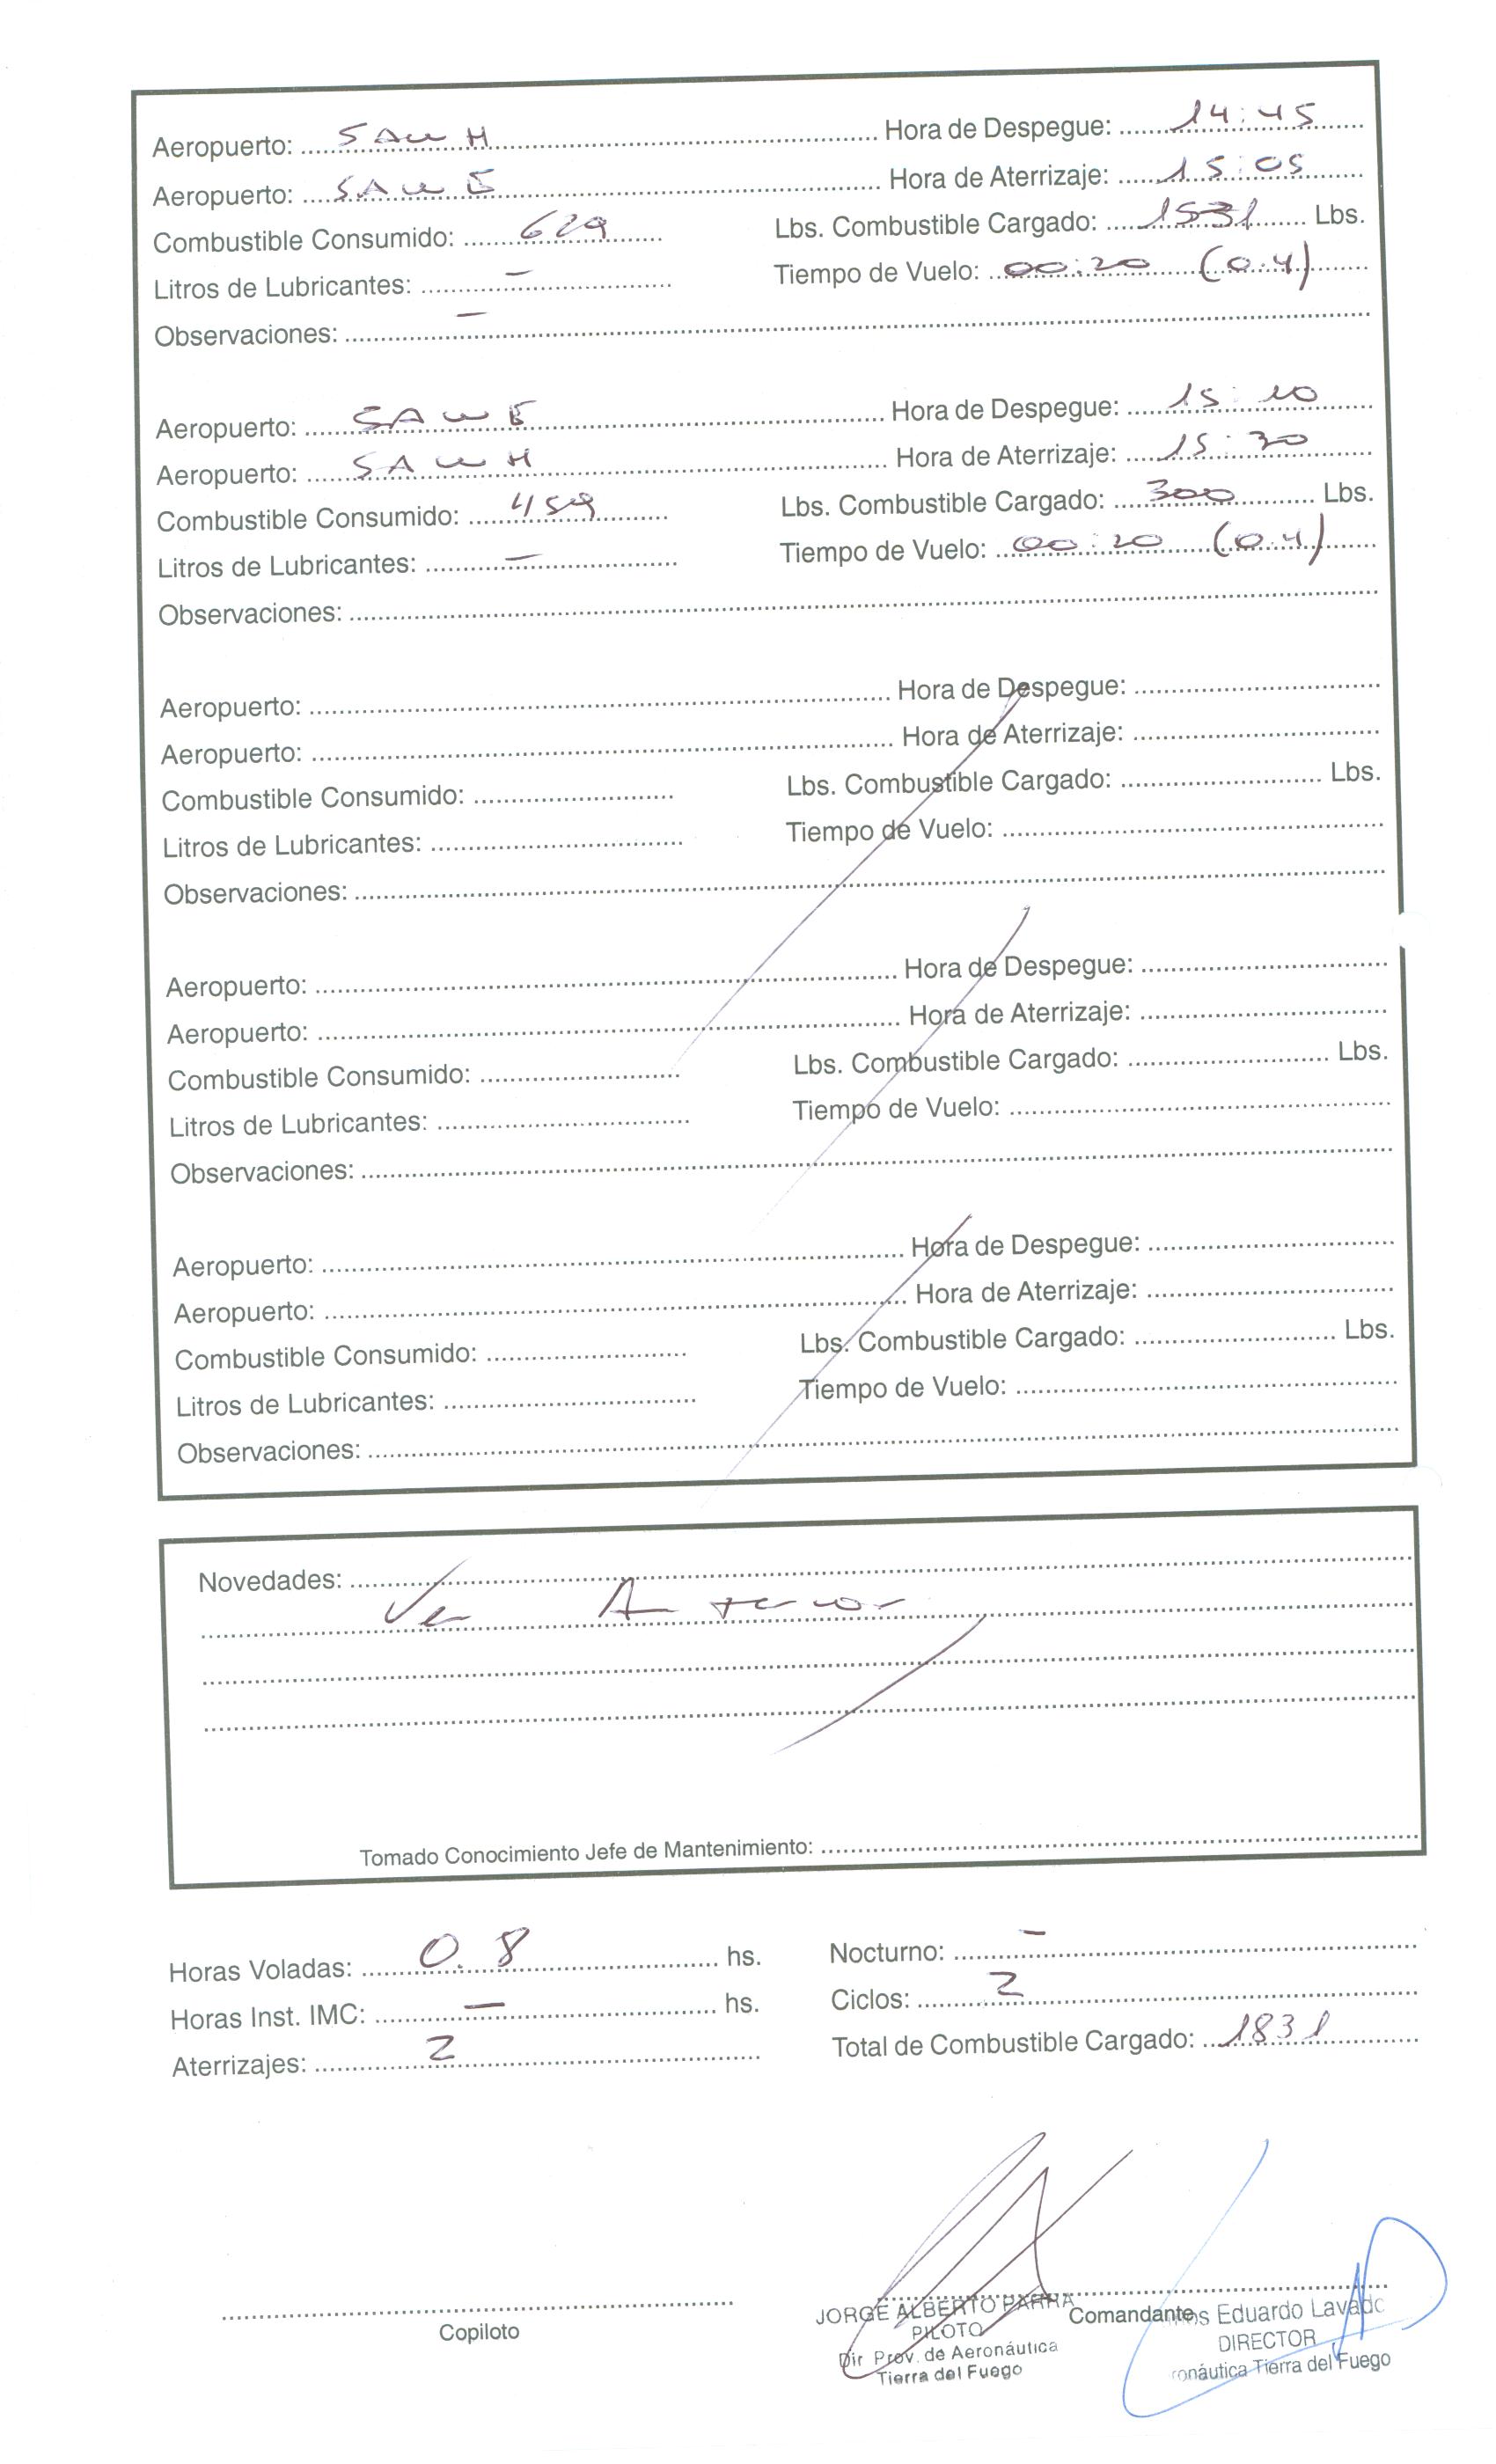 Aeropuerto: SAWH Hora de Despegue: 14:45
Aeropuerto: SAWE Hora de Aterrizaje: 15:05
Combustible Consumido: 629 Lbs. Combustible Cargado: 1531 Lbs.
Litros de Lubricantes: - Tiempo de Vuelo: 00:20 (0.4)
Observaciones: -
Aeropuerto: SAWE Hora de Despegue: 15:10
Aeropuerto: SAWH Hora de Aterrizaje: 15:30
Combustible Consumido: 459 Lbs. Combustible Cargado: 300 Lbs.
Litros de Lubricantes: - Tiempo de Vuelo: 00:20 (0.4)
Observaciones:
Aeropuerto: Hora de Despegue:
Aeropuerto: Hora de Aterrizaje:
Combustible Consumido: Lbs. Combustible Cargado: Lbs.
Litros de Lubricantes: Tiempo de Vuelo:
Observaciones:
Aeropuerto: Hora de Despegue:
Aeropuerto: Hora de Aterrizaje:
Combustible Consumido: Lbs. Combustible Cargado: Lbs.
Litros de Lubricantes: Tiempo de Vuelo:
Observaciones:
Aeropuerto: Hora de Despegue:
Aeropuerto: Hora de Aterrizaje:
Combustible Consumido: Lbs. Combustible Cargado: Lbs.
Litros de Lubricantes: Tiempo de Vuelo:
Observaciones:
Novedades:
Ver Anterior
Tomado Conocimiento Jefe de Mantenimiento:
Horas Voladas: 0.8 hs. Nocturno: -
Horas Inst. IMC: - hs. Ciclos: 2
Aterrizajes: 2 Total de Combustible Cargado: 1831
Copiloto
JORGE ALBERTO PARRA
PILOTO
Dir Prov. de Aeronáutica
Tierra del Fuego
Comandante
os Eduardo Lavado
DIRECTOR
ronáutica Tierra del Fuego